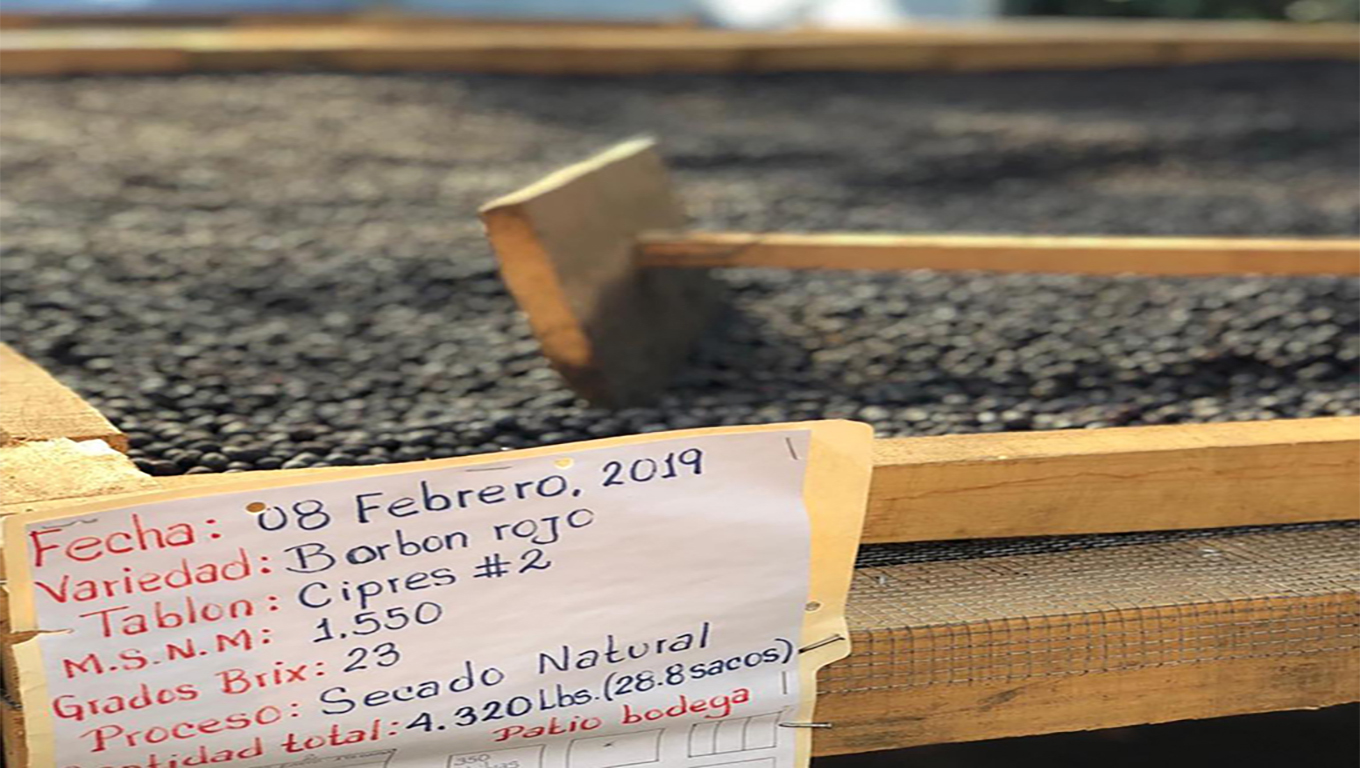 Fecha: 08 Febrero, 2019
Variedad: Borbon rojo
Tablon: Cipres #2
M.S.N.M: 1.550
Grados Brix: 23
Proceso: Secado Natural
Cantidad total: 4.320 Lbs. (28.8 sacos)
Patio bodega
350